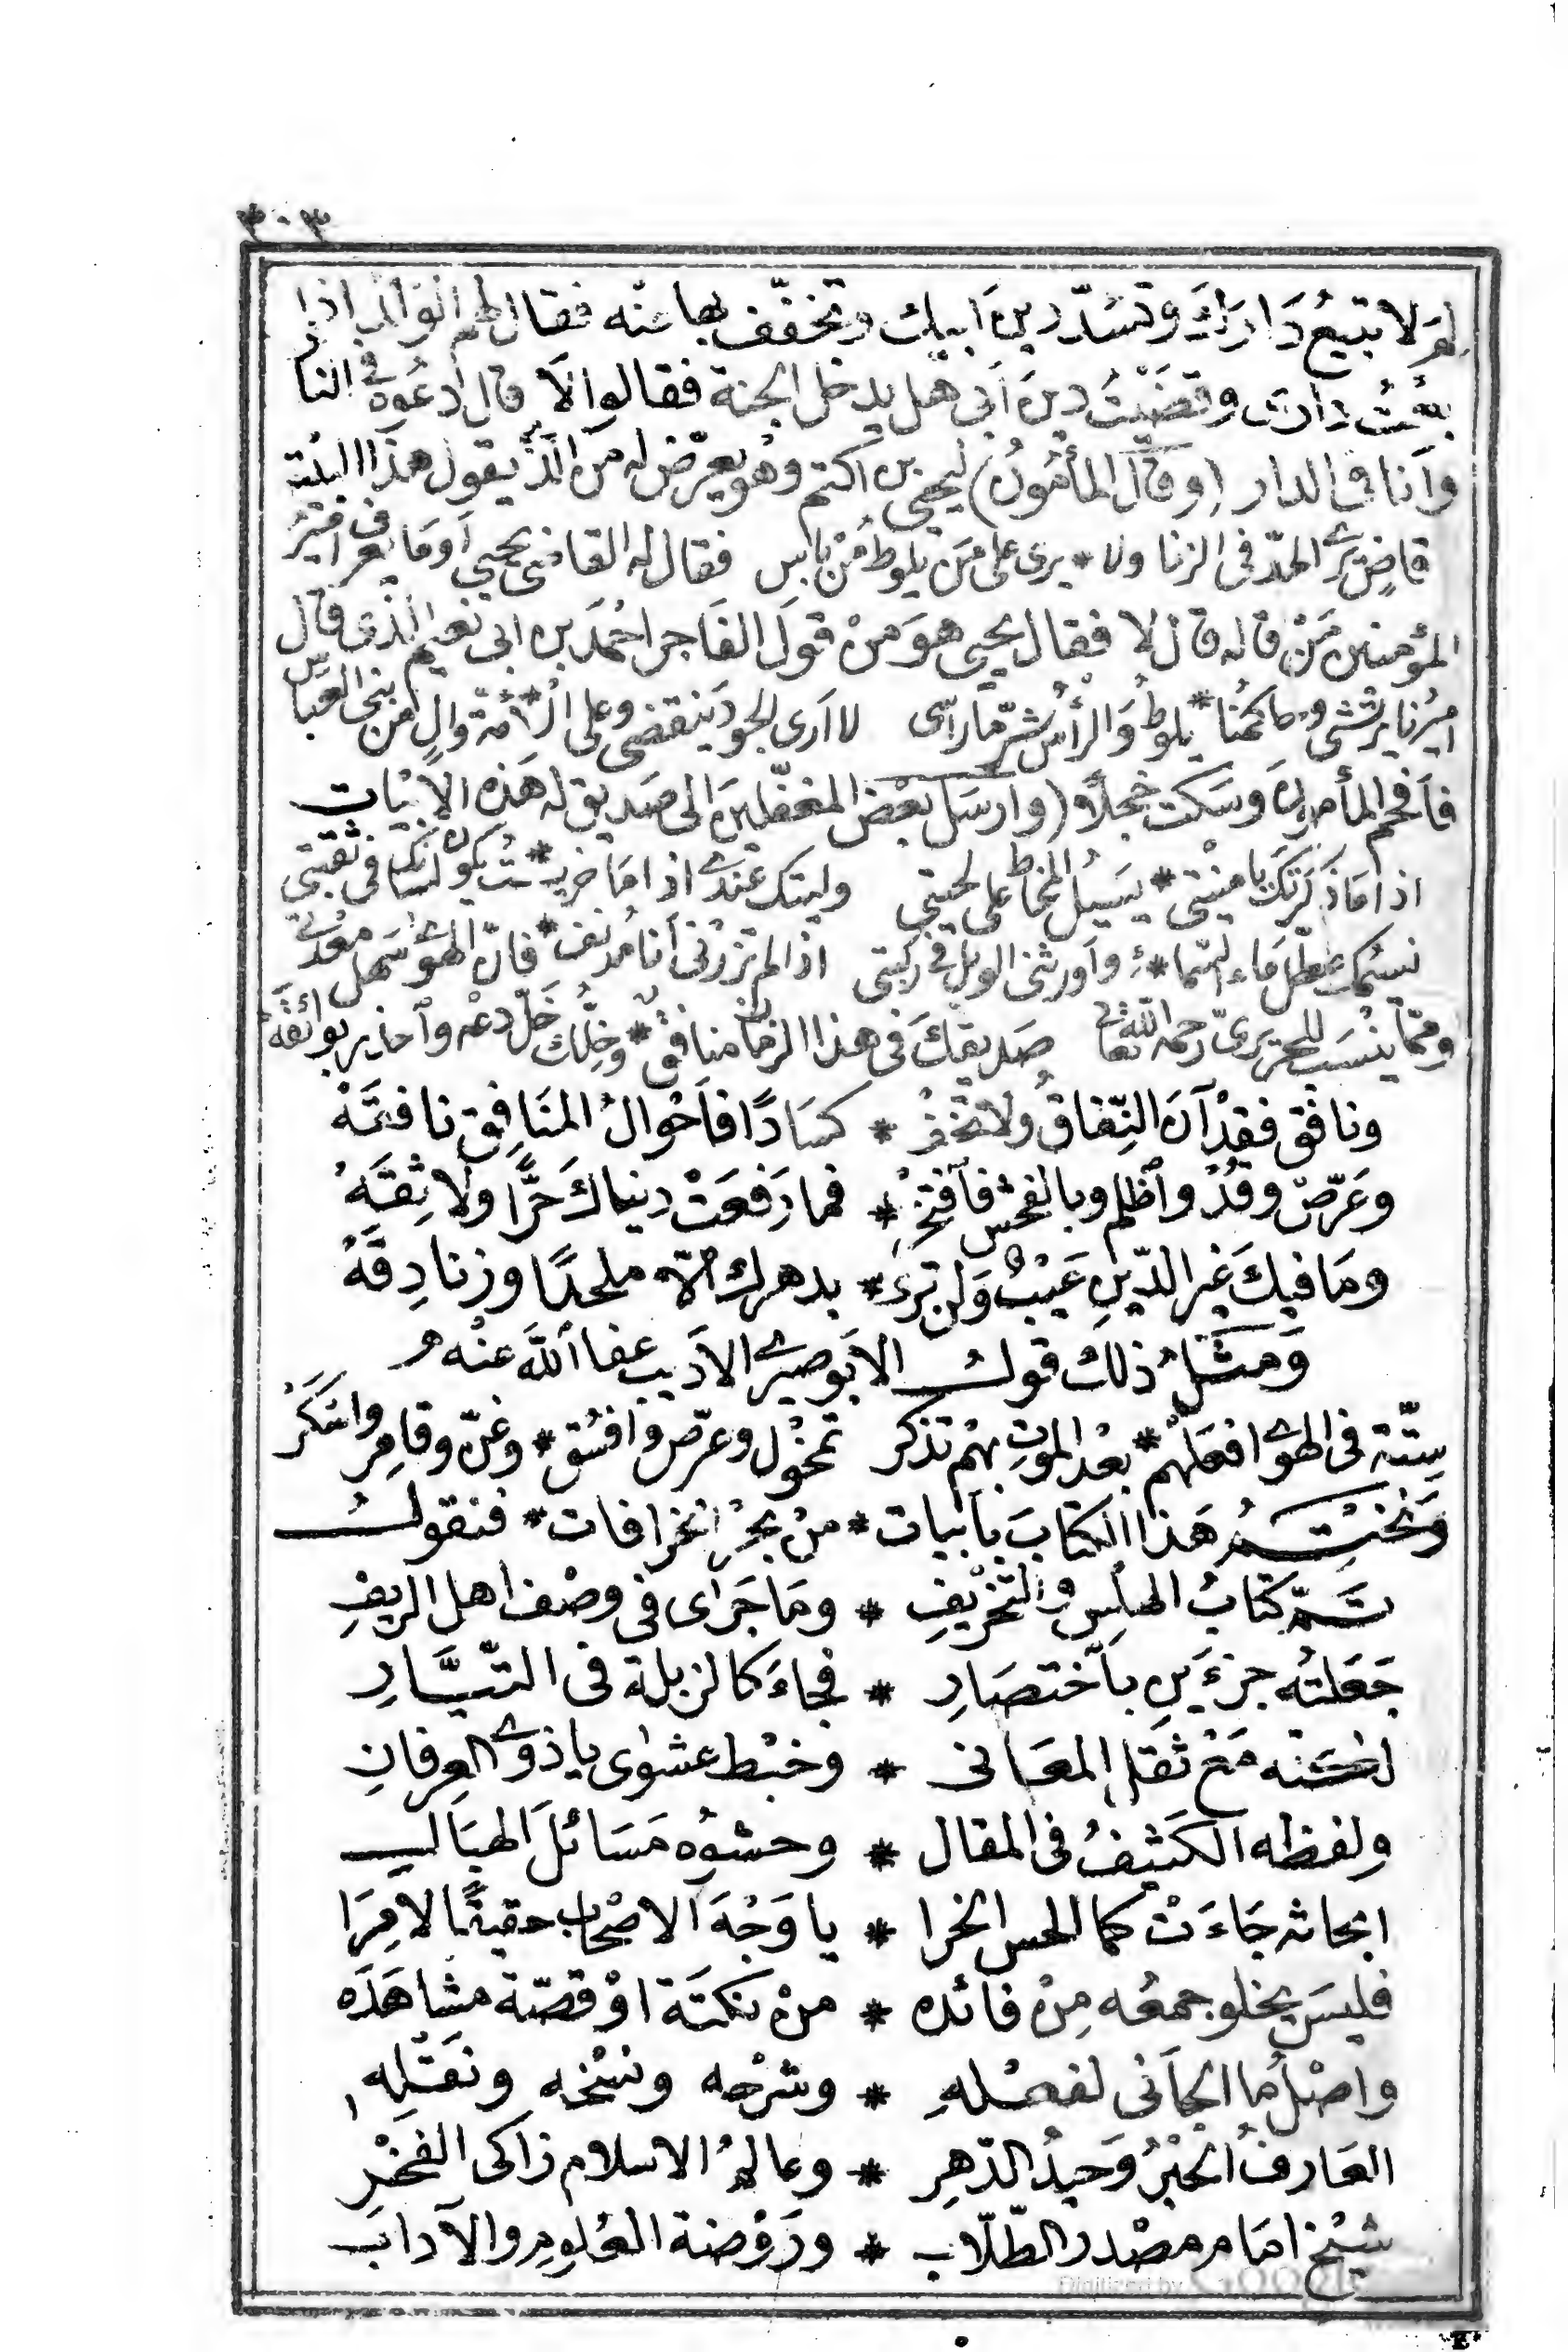 ٣٠٣
لِمَ لا تبيعُ دَارَكَ وتسُدّ دين اَبيك وتخفّف بها عنه فقال لهم انى اذا
بعْتُ دارى وقضَيْتُ دين اَبى هل يدخل الجنة فقالوا لاَ قال ادعُوه فى النار
واَنا فى الدار (وقال المأمُونُ) ليحيى بن اكتم وهو يعرّض له مَن الّذى يقول هذا البيت
قاضٍ يَرى الحدّ فى الزنا ولا * يرى على مَن يلوط مِن باس فقال له القاضى يحيى اَومَا يعرف امير
المؤمنين مَنْ قاله قال لا فقال يحيى هوَ مِنْ قولَ الفَاجر احْمَد بن ابى نعيم الّذى قال
اميرُنا يرتشى وحاكمُنا * يلوطُ وَالرأسُ شرّ مَا رأى لا اَرى الجودَ ينقضى وعلى الـ * أمّة وَالٍ من بنى العبّاس
فاَفحم المأمون وَسَكت خجلاً (وارسَل بعْض المغفّلين الى صَديق له هَذه الابْيات
اذا مَا ذكَرتك يا منيتى * يَسيلُ المخاط على لحيتى وليتك عندى اذا مَا خريـ * ـت
ومّمّا ينسَب للحريرىّ رحمه اللّه تعَالى صَديقكَ فى هذا الزمَان منافقٌ * وخِلّك خَلّ دعْه وٱحذر بوائقَه
ونافق فقدْ آنَ النِّفاقُ ولا تخَفْ * كسَادًا فاَحْوالُ المنَافِقِ نافقَهْ
وعَرّصْ وقُدْ وٱظلم وبالفحش فآفتخِر * فما رَفعَتْ دنياكَ حَرًّا ولا ثِقَهْ
ومَا فيكَ غير الدّينِ عَيْبٌ وَلن ترى * بدهرك الاّ ملحدًا وزنادِقَهْ
وَمثلُ ذلك قول الابوصيرى الاَديب عفا اللّهَ عنْه
ستّة فى الهوى افعَلهُم * بعْد الموتِ بهم تذكر تمخْول وعرّص وَافسُق * وغنّ وقامِر واسْكَرْ
وَنختِمُ هَذا الكتابَ باَبيات * منْ بحْرِ الخرافات * فنقول
تمّ كتابُ الهلْسِ والتخْريفِ * ومَا جَرَاى فى وصْف اهل الريفِ
جَعَلتُه جزءَين باَختصَارِ * فجاءَ كالزبلة فى التيَّارِ
لضمنْه مَعْ ثقَلِ المعَانى * وخبْط عشوٰى يا ذوى العِرفانِ
ولفظه الكثيفُ فى المقال * وحشوُه مَسَائلَ الهبَال
ابحاثه جَاءَتْ كما لحس الخرا * يا وَجْهَ الاصْحاب حقيقًا لا مِرَا
فليسَ يخلو جمعُه مِنْ فائده * منْ نكتَة اوْ قصّة مشاهَدَه
واصْلُ ما الجاَنى لفعْلهِ * وشرْحه ونسْخه ونقْلِه
العَارفُ الحَبْرُ وَحيدُ الدّهرِ * وعالمُ الاسلام زاكى الفَخْرِ
شيْخ امَام مصْدر الطّلّاب * ورَوْضة العُلومِ والآدابَ
Digitized by Google